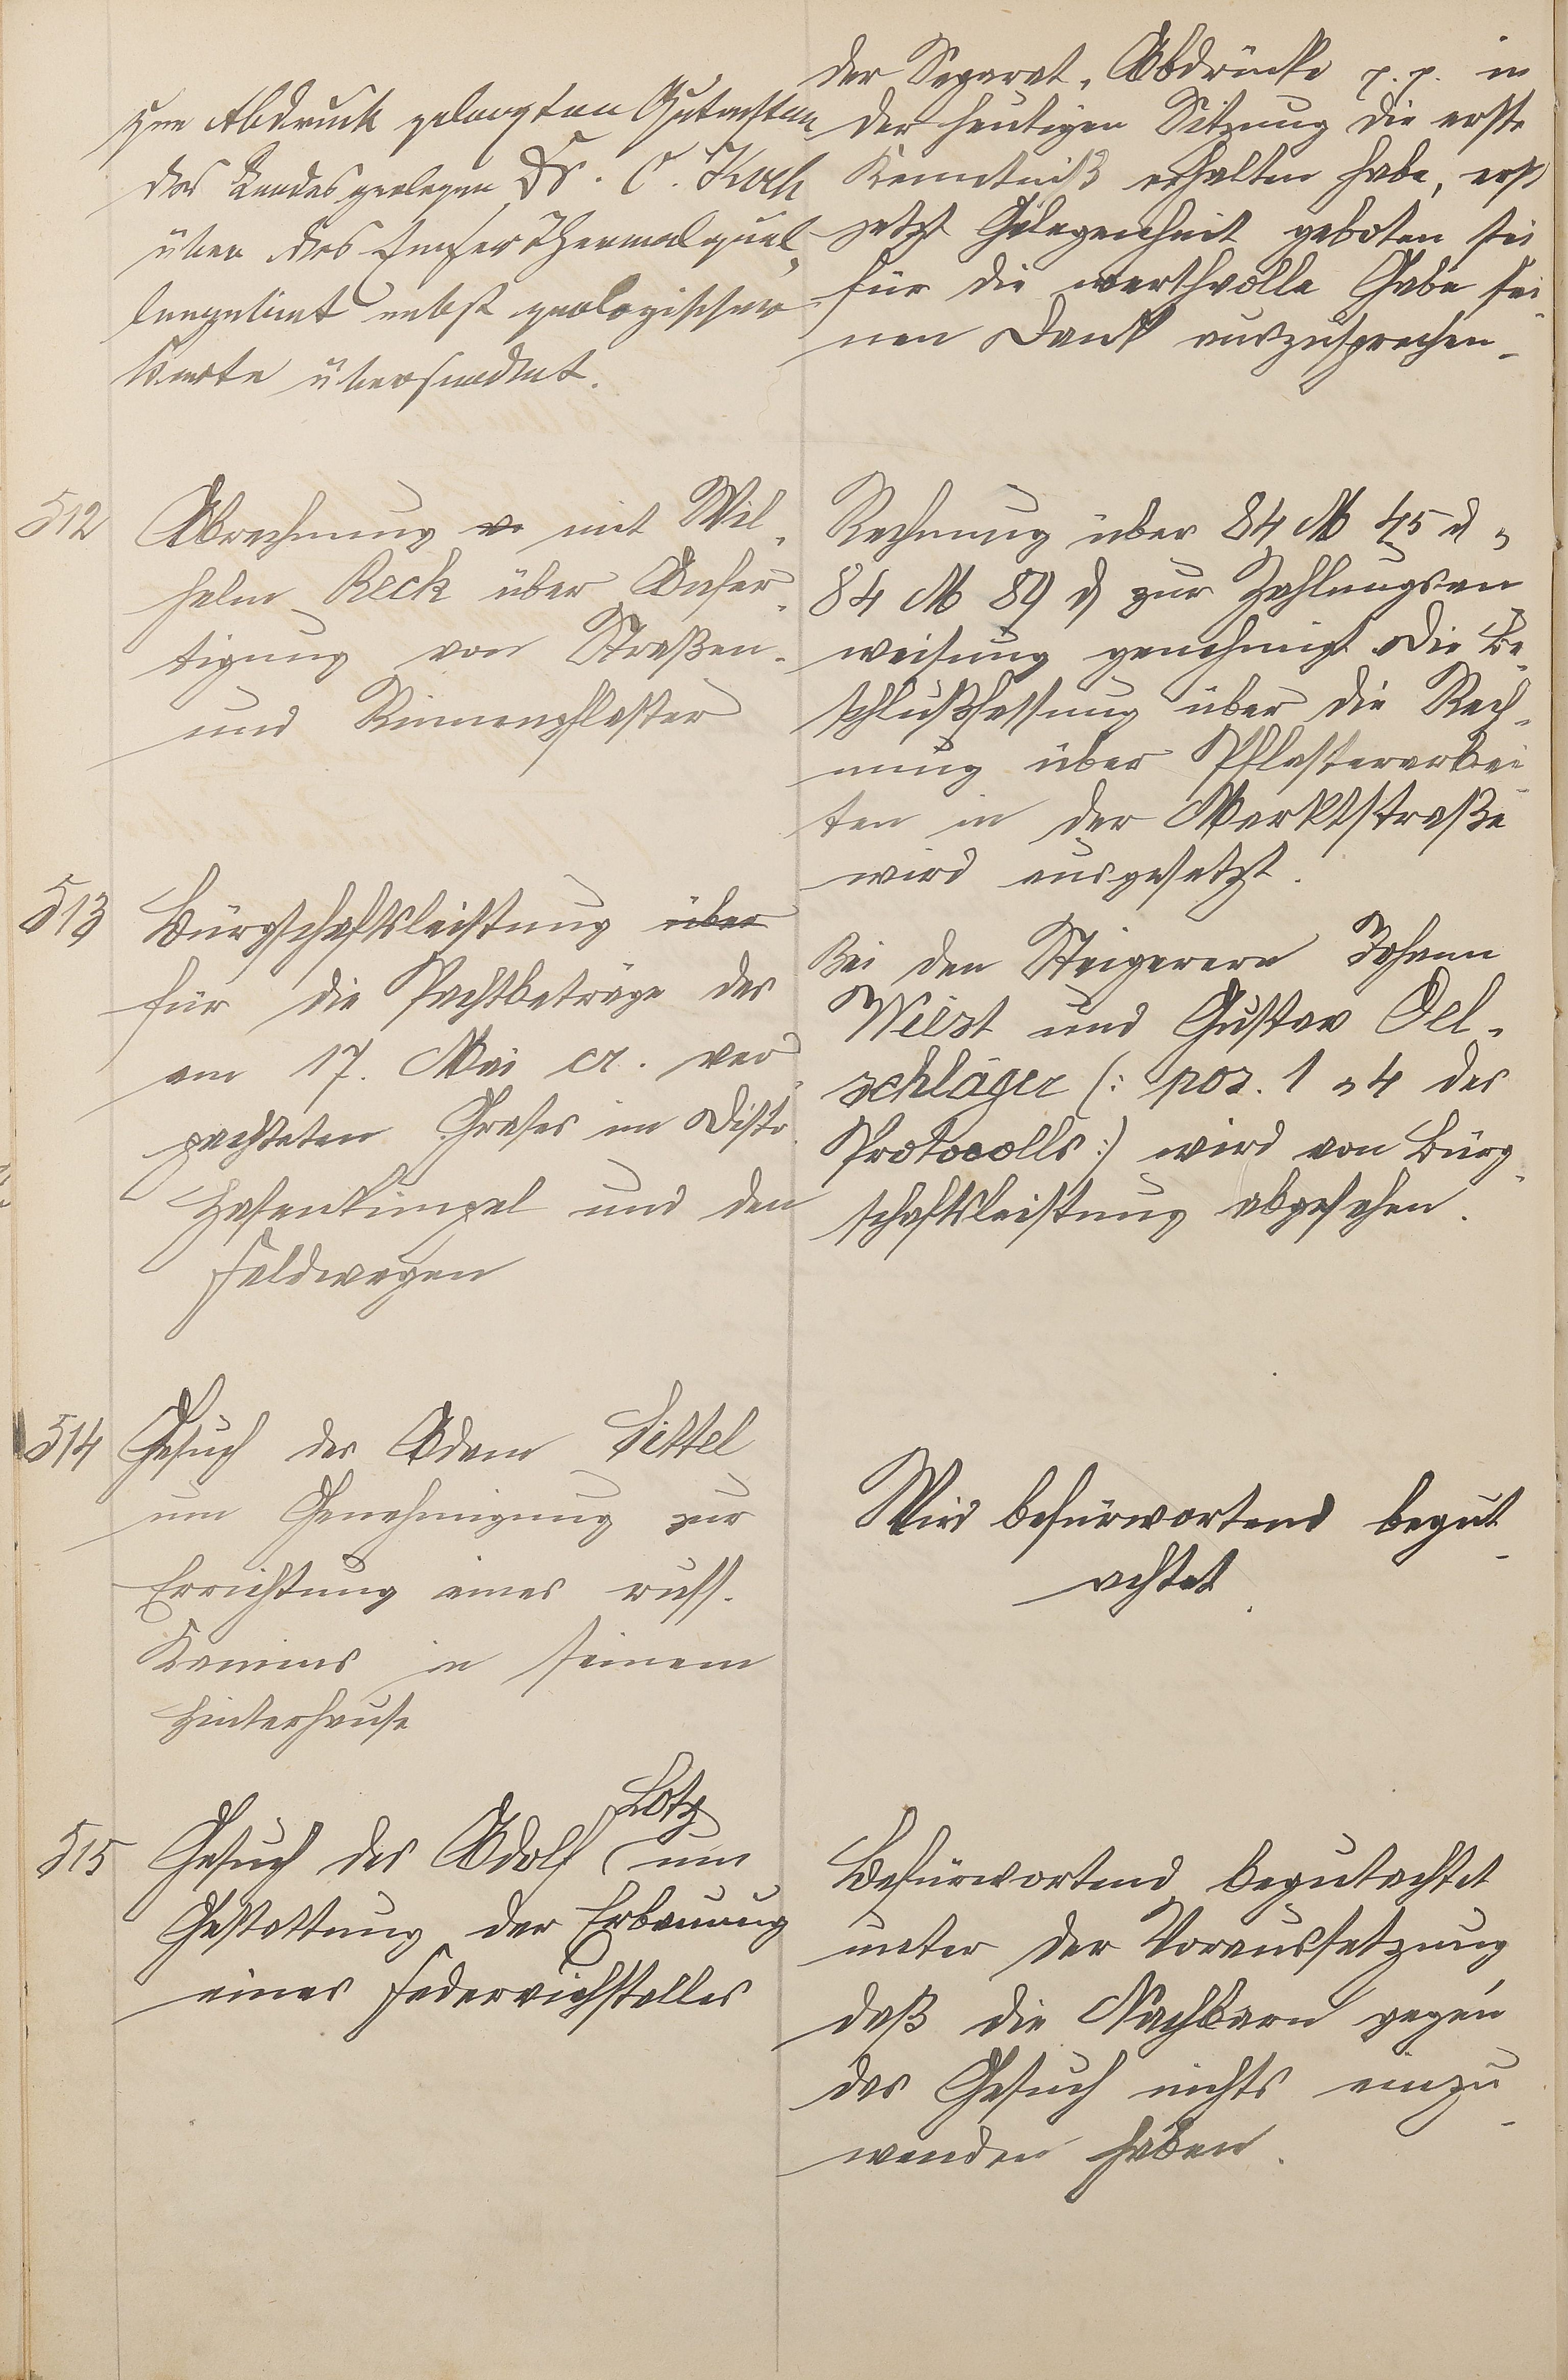 zum Abdruck gelangten Gutachten
des Landesgeologen Dr. C. Koch
über das Emser Thermalquel-
lengebiet nebst geologischer
Karte übersendet.
der Separat-Abdrücke p. p. in
der heutigen Sitzung die erste
Kenntniß erhalten habe, erst
jetzt Gelegenheit geboten sei
für die werthvolle Gabe sei-
nen Dank auszusprechen.
512
Abrechnung mit Wil-
helm Reck über Anfer-
tigung von Straßen-
und Rinnenpflaster
Rechnung über 84 M 45 d u
84 M 89 d zur Zahlungsan-
weisung genehmigt Die Be-
schlußfassung über die Rech-
nung über Pflasterarbei-
ten in der Marktstraße
wird ausgesetzt.
513
Bürgschaftsleistung über
für die Pachtbeträge des
am 17. Mai cr. ver-
pachteten Grases im Distr.
Hasenkümpel und den
Feldwegen
Bei den Steigerern Johann
Wiest und Gustav Oel-
schläger (: pos. 1 u 4 des
Protocolls :) wird von Bürg-
schaftsleistung abgesehen.
514
Gesuch des Adam Sittel
um Genehmigung zur
Errichtung eines russ.
Kamins in seinem
Hinterhause
Wird befürwortend begut-
achtet.
515
Gesuch des Adolf Lotz um
Gestattung der Erbauung
eines Federviehstalles
Befürwortend begutachtet
unter der Voraussetzung
daß die Nachbarn gegen
das Gesuch nichts einzu-
wenden haben.